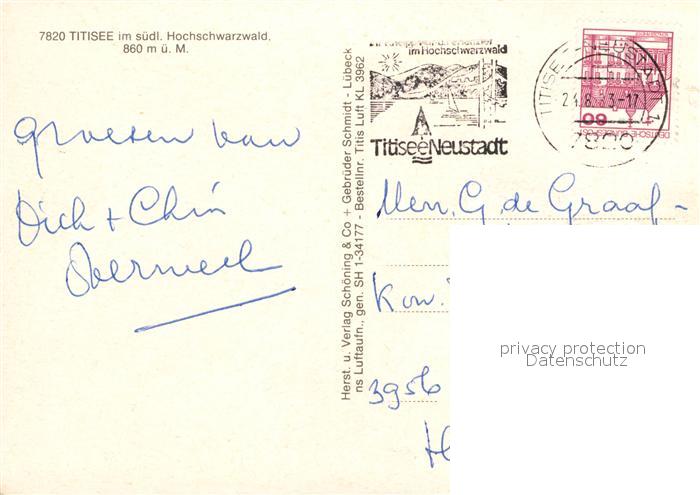 7820 TITISEE im südl. Hochschwarzwald,
860 m ü. M.
groeten van
Dick + Chin
Overweel
Herst. u. Verlag Schöning & Co + Gebrüder Schmidt - Lübeck
ns Luftaufn., gen. SH 1-34177 - Bestellnr. Titis Luft KL 3962
im Hochschwarzwald
Titisee Neustadt
TITISEE-NEUSTADT 1
21.8. -17
7820
60
DEUTSCHE BUNDESPOST
Men. G. de Graaf-
Kon.
3956
privacy protection
Datenschutz